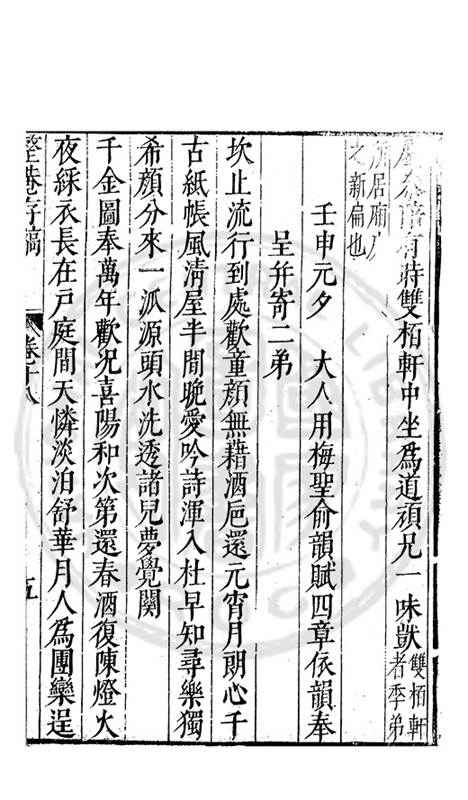 有蒔雙栢軒中坐爲道頑兄一味獃雙栢軒者季弟
所居廂
之新扁也
壬申元夕　大人用梅聖俞韻賦四章依韻奉
呈并寄二弟
坎止流行到處歡童顔無藉酒巵還元宵月朗心千
古紙帳風清屋半間晩愛吟詩渾入杜早知尋樂獨
希顔分來一派源頭水洗透諸兒夢覺関
千金圖奉萬年歡況喜陽和次第還春酒復陳燈火
夜綵衣長在戸庭間天憐淡泊舒華月人爲團欒逞
整菴存稿　卷十八　五